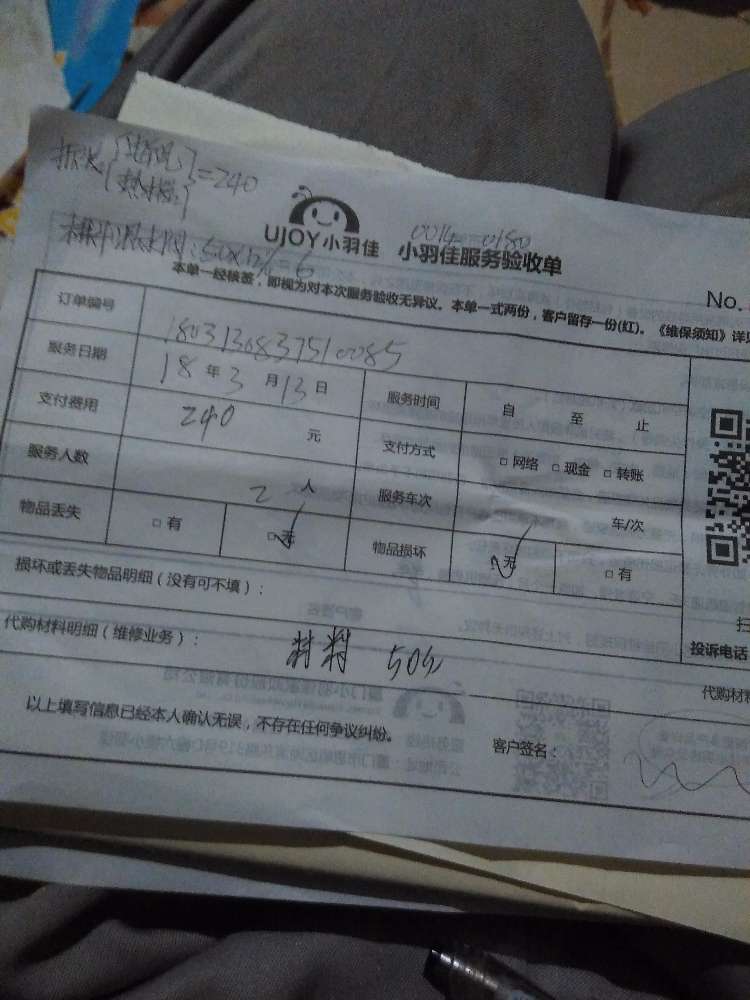 拆装 空调 热水器 =240
材料費: 50X12%=6
UJOY小羽佳 小羽佳服务验收单
0014 0180
No.
本单一经核签，即视为对本次服务验收无异议。本单一式两份，客户留存一份(红)。《维保须知》详见
订单编号 1803130837510085
服务日期 18 年 3 月 13 日 服务时间 自 至 止
支付费用 240 元 支付方式 □ 网络 □ 现金 □ 转账
服务人数 2 人 服务车次 车/次
物品丢失 □ 有 □ 无 物品损坏 □ 无 □ 有
损坏或丢失物品明细（没有可不填）：
代购材料明细（维修业务）： 材料 50元
投诉电话
代购材
以上填写信息已经本人确认无误，不存在任何争议纠纷。 客户签名：